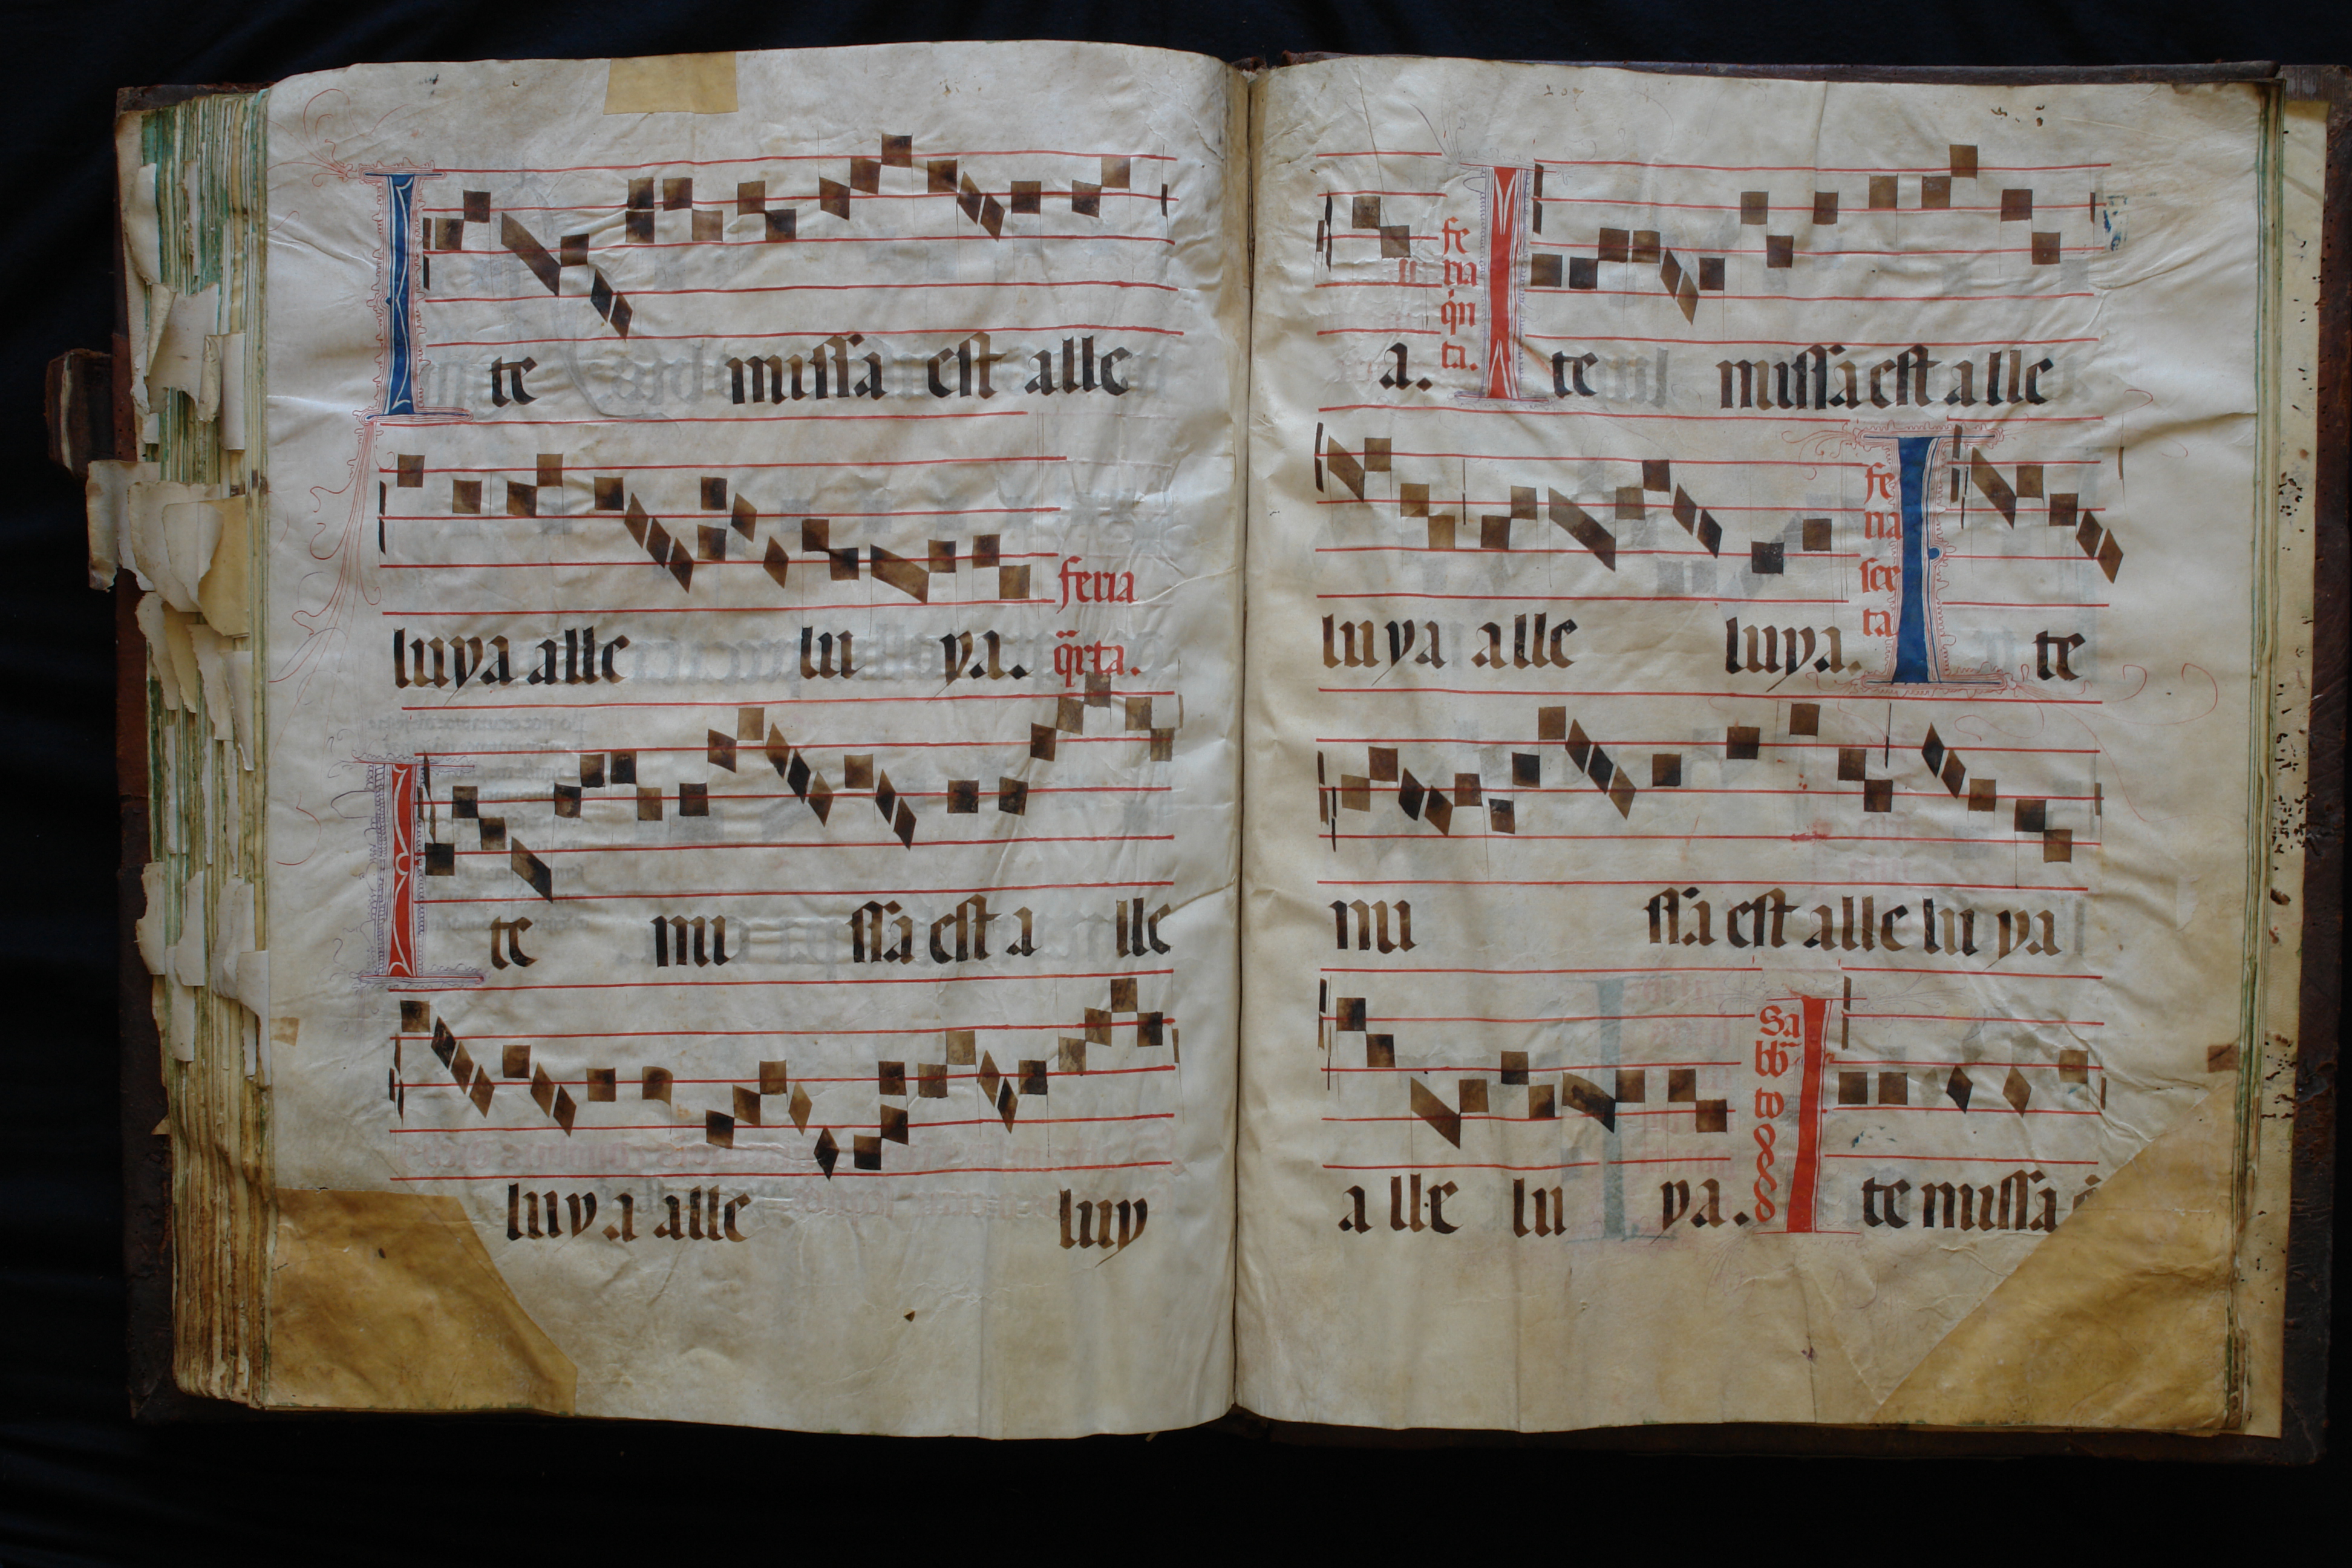 Ite missa est alle
luya alle lu ya. feria
q̄rta.
Ite mi ssa est a lle
luya alle luy
a. fe
ria
q̇n
ta. Ite missa est alle
luya alle luya. fe
ria
sex
ta Ite
mi ssa est alle lu ya
a lle lu ya. Sa
bb̄
to Ite missa ē